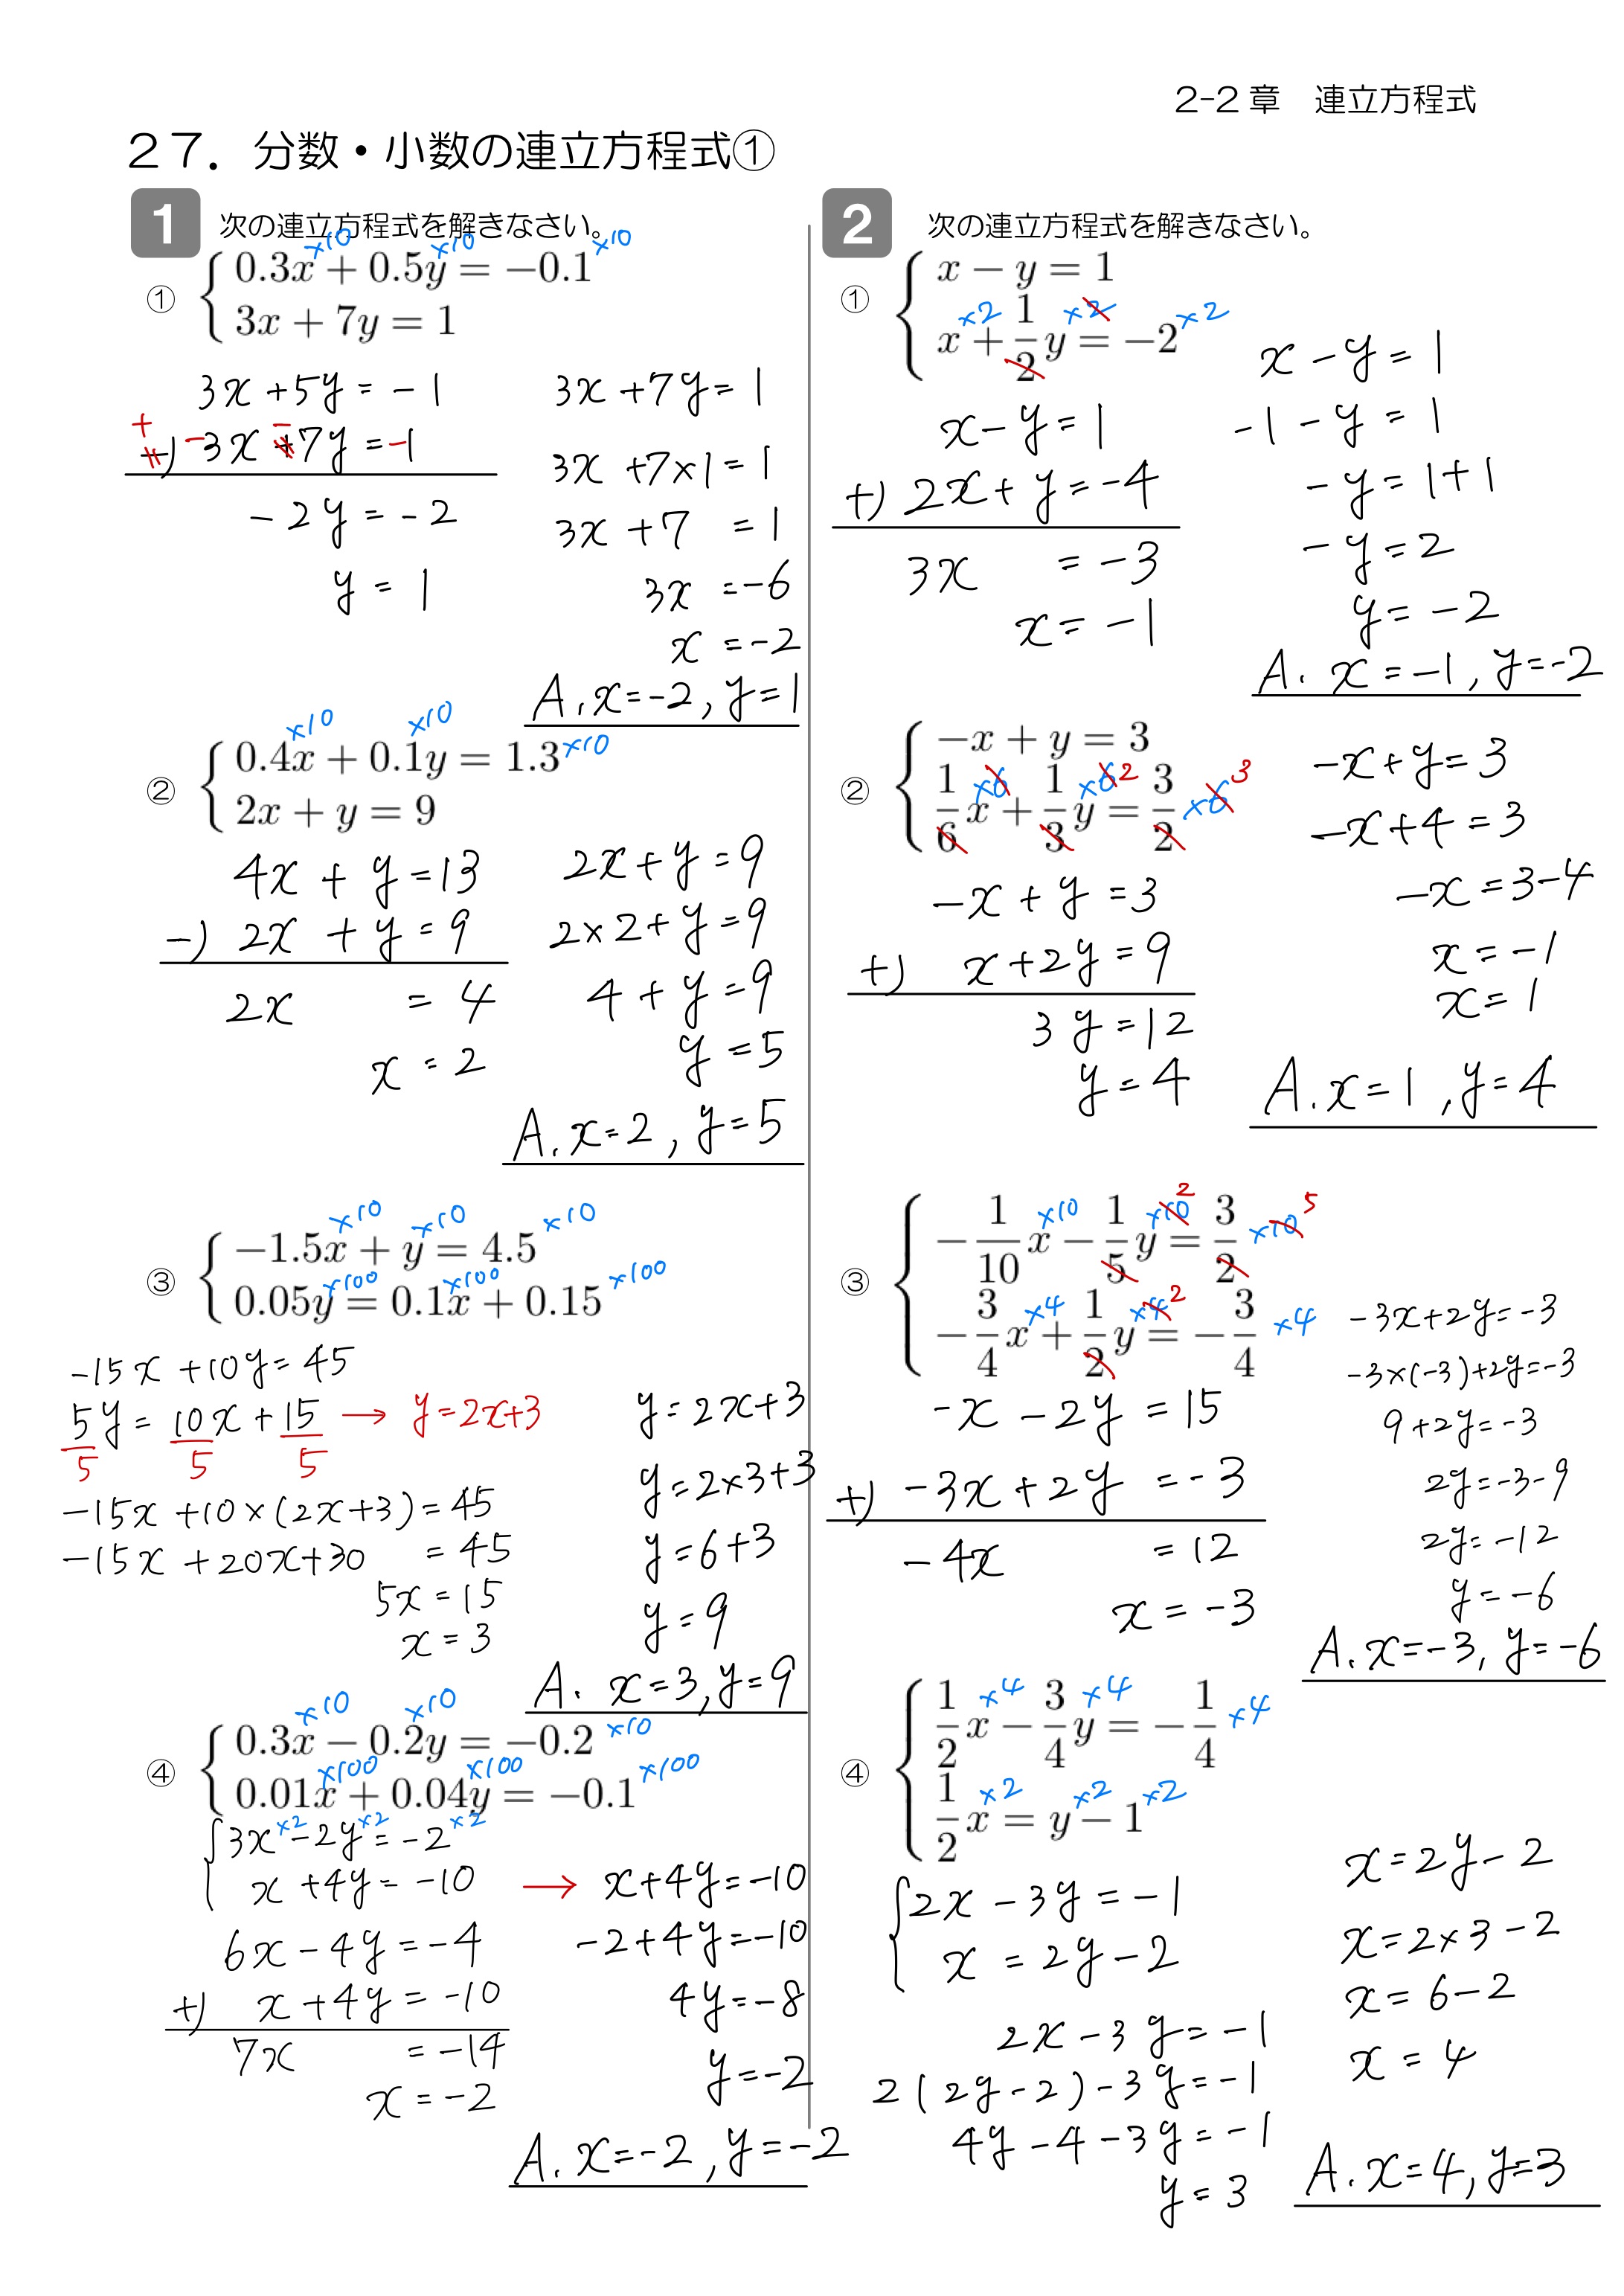 2-2章　連立方程式
27．分数・小数の連立方程式①
1 次の連立方程式を解きなさい。
① 0.3x + 0.5y = −0.1 ×10 ×10 ×10
3x + 7y = 1
3x+5y=-1
+) -3x -7y=-1
-2y=-2
y=1
3x+7y=1
3x+7×1=1
3x+7=1
3x=-6
x=-2
A. x=-2, y=1
② 0.4x + 0.1y = 1.3 ×10 ×10 ×10
2x + y = 9
4x+y=13
-) 2x+y=9
2x=4
x=2
2x+y=9
2×2+y=9
4+y=9
y=5
A. x=2, y=5
③ −1.5x + y = 4.5 ×10 ×10 ×10
0.05y = 0.1x + 0.15 ×100 ×100 ×100
-15x+10y=45
5y=10x+15 → y=2x+3
5 5 5
-15x+10×(2x+3)=45
-15x+20x+30=45
5x=15
x=3
y=2x+3
y=2×3+3
y=6+3
y=9
A. x=3, y=9
④ 0.3x − 0.2y = −0.2 ×10 ×10 ×10
0.01x + 0.04y = −0.1 ×100 ×100 ×100
3x-2y=-2 ×2 ×2 ×2
x+4y=-10 → x+4y=-10
6x-4y=-4
+) x+4y=-10
7x=-14
x=-2
-2+4y=-10
4y=-8
y=-2
A. x=-2, y=-2
2 次の連立方程式を解きなさい。
① x − y = 1
x + 1/2 y = −2 ×2 ×2 ×2
x-y=1
+) 2x+y=-4
3x=-3
x=-1
x-y=1
-1-y=1
-y=1+1
-y=2
y=-2
A. x=-1, y=-2
② −x + y = 3
1/6 x + 1/3 y = 3/2 ×6 ×6 2 ×6 3
-x+y=3
+) x+2y=9
3y=12
y=4
-x+y=3
-x+4=3
-x=3-4
x=-1
x=1
A. x=1, y=4
③ −1/10 x − 1/5 y = 3/2 ×10 ×10 2 ×10 5
−3/4 x + 1/2 y = −3/4 ×4 ×4 2 ×4
-x-2y=15
+) -3x+2y=-3
-4x=12
x=-3
-3x+2y=-3
-3×(-3)+2y=-3
9+2y=-3
2y=-3-9
2y=-12
y=-6
A. x=-3, y=-6
④ 1/2 x − 3/4 y = −1/4 ×4 ×4 ×4
1/2 x = y − 1 ×2 ×2 ×2
2x-3y=-1
x=2y-2
2x-3y=-1
2(2y-2)-3y=-1
4y-4-3y=-1
y=3
x=2y-2
x=2×3-2
x=6-2
x=4
A. x=4, y=3